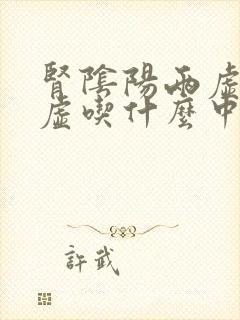 腎陰陽兩虛
虛喫什麼中
許武